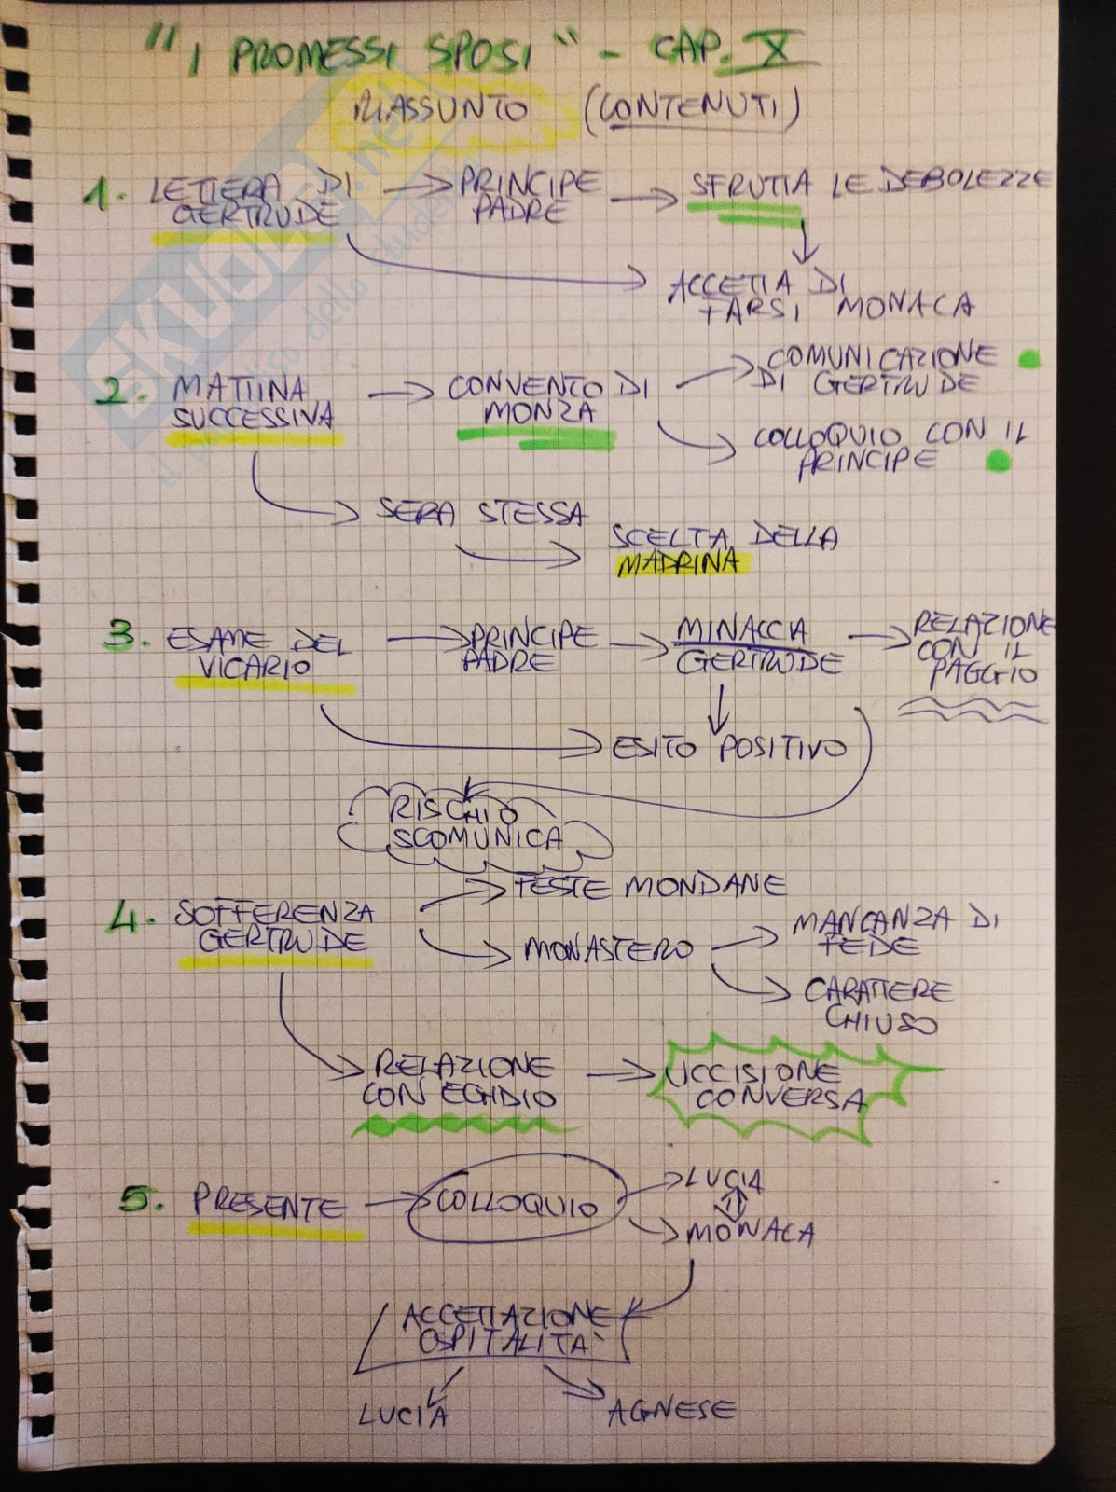 "I PROMESSI SPOSI" - CAP. X
RIASSUNTO (CONTENUTI)
1. LETTERA DI GERTRUDE → PRINCIPE PADRE → SFRUTTA LE DEBOLEZZE
ACCETTA DI
FARSI MONACA
2. MATTINA SUCCESSIVA → CONVENTO DI MONZA
COMUNICAZIONE
DI GERTRUDE
COLLOQUIO CON IL
PRINCIPE
SERA STESSA
SCELTA DELLA
MADRINA
3. ESAME DEL VICARIO → PRINCIPE PADRE → MINACCIA GERTRUDE → RELAZIONE CON IL PAGGIO
ESITO POSITIVO
RISCHIO
SCOMUNICA
4. SOFFERENZA GERTRUDE
FESTE MONDANE
MONASTERO
MANCANZA DI
FEDE
CARATTERE
CHIUSO
RELAZIONE CON EGIDIO → UCCISIONE CONVERSA
5. PRESENTE → COLLOQUIO
LUCIA
MONACA
ACCETTAZIONE
OSPITALITÀ
LUCIA
AGNESE
SKUOLA.net